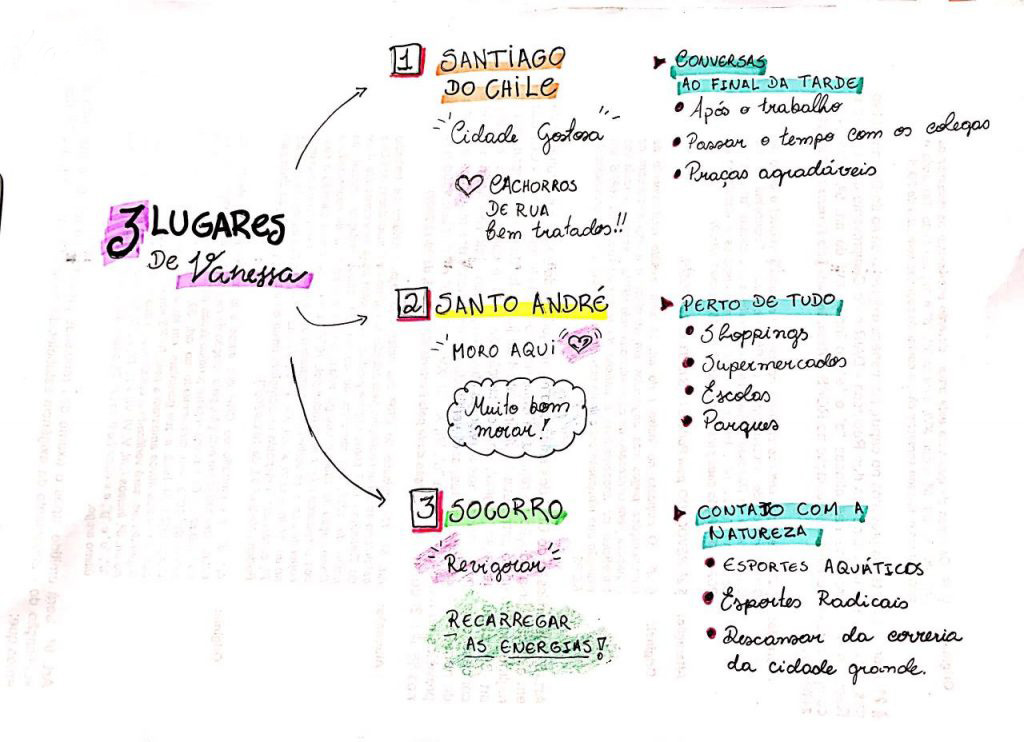 3 LUGARES
DE Vanessa
1 SANTIAGO
DO CHILE
Cidade Gostosa
CACHORROS
DE RUA
bem tratados!!
CONVERSAS
AO FINAL DA TARDE
Após o trabalho
Passar o tempo com os colegas
Praças agradáveis
2 SANTO ANDRÉ
MORO AQUI
Muito bom
morar!
PERTO DE TUDO
Shoppings
Supermercados
Escolas
Parques
3 SOCORRO
Revigorar
RECARREGAR
AS ENERGIAS!
CONTATO COM A
NATUREZA
ESPORTES AQUÁTICOS
Esportes Radicais
Descansar da correria
da cidade grande.